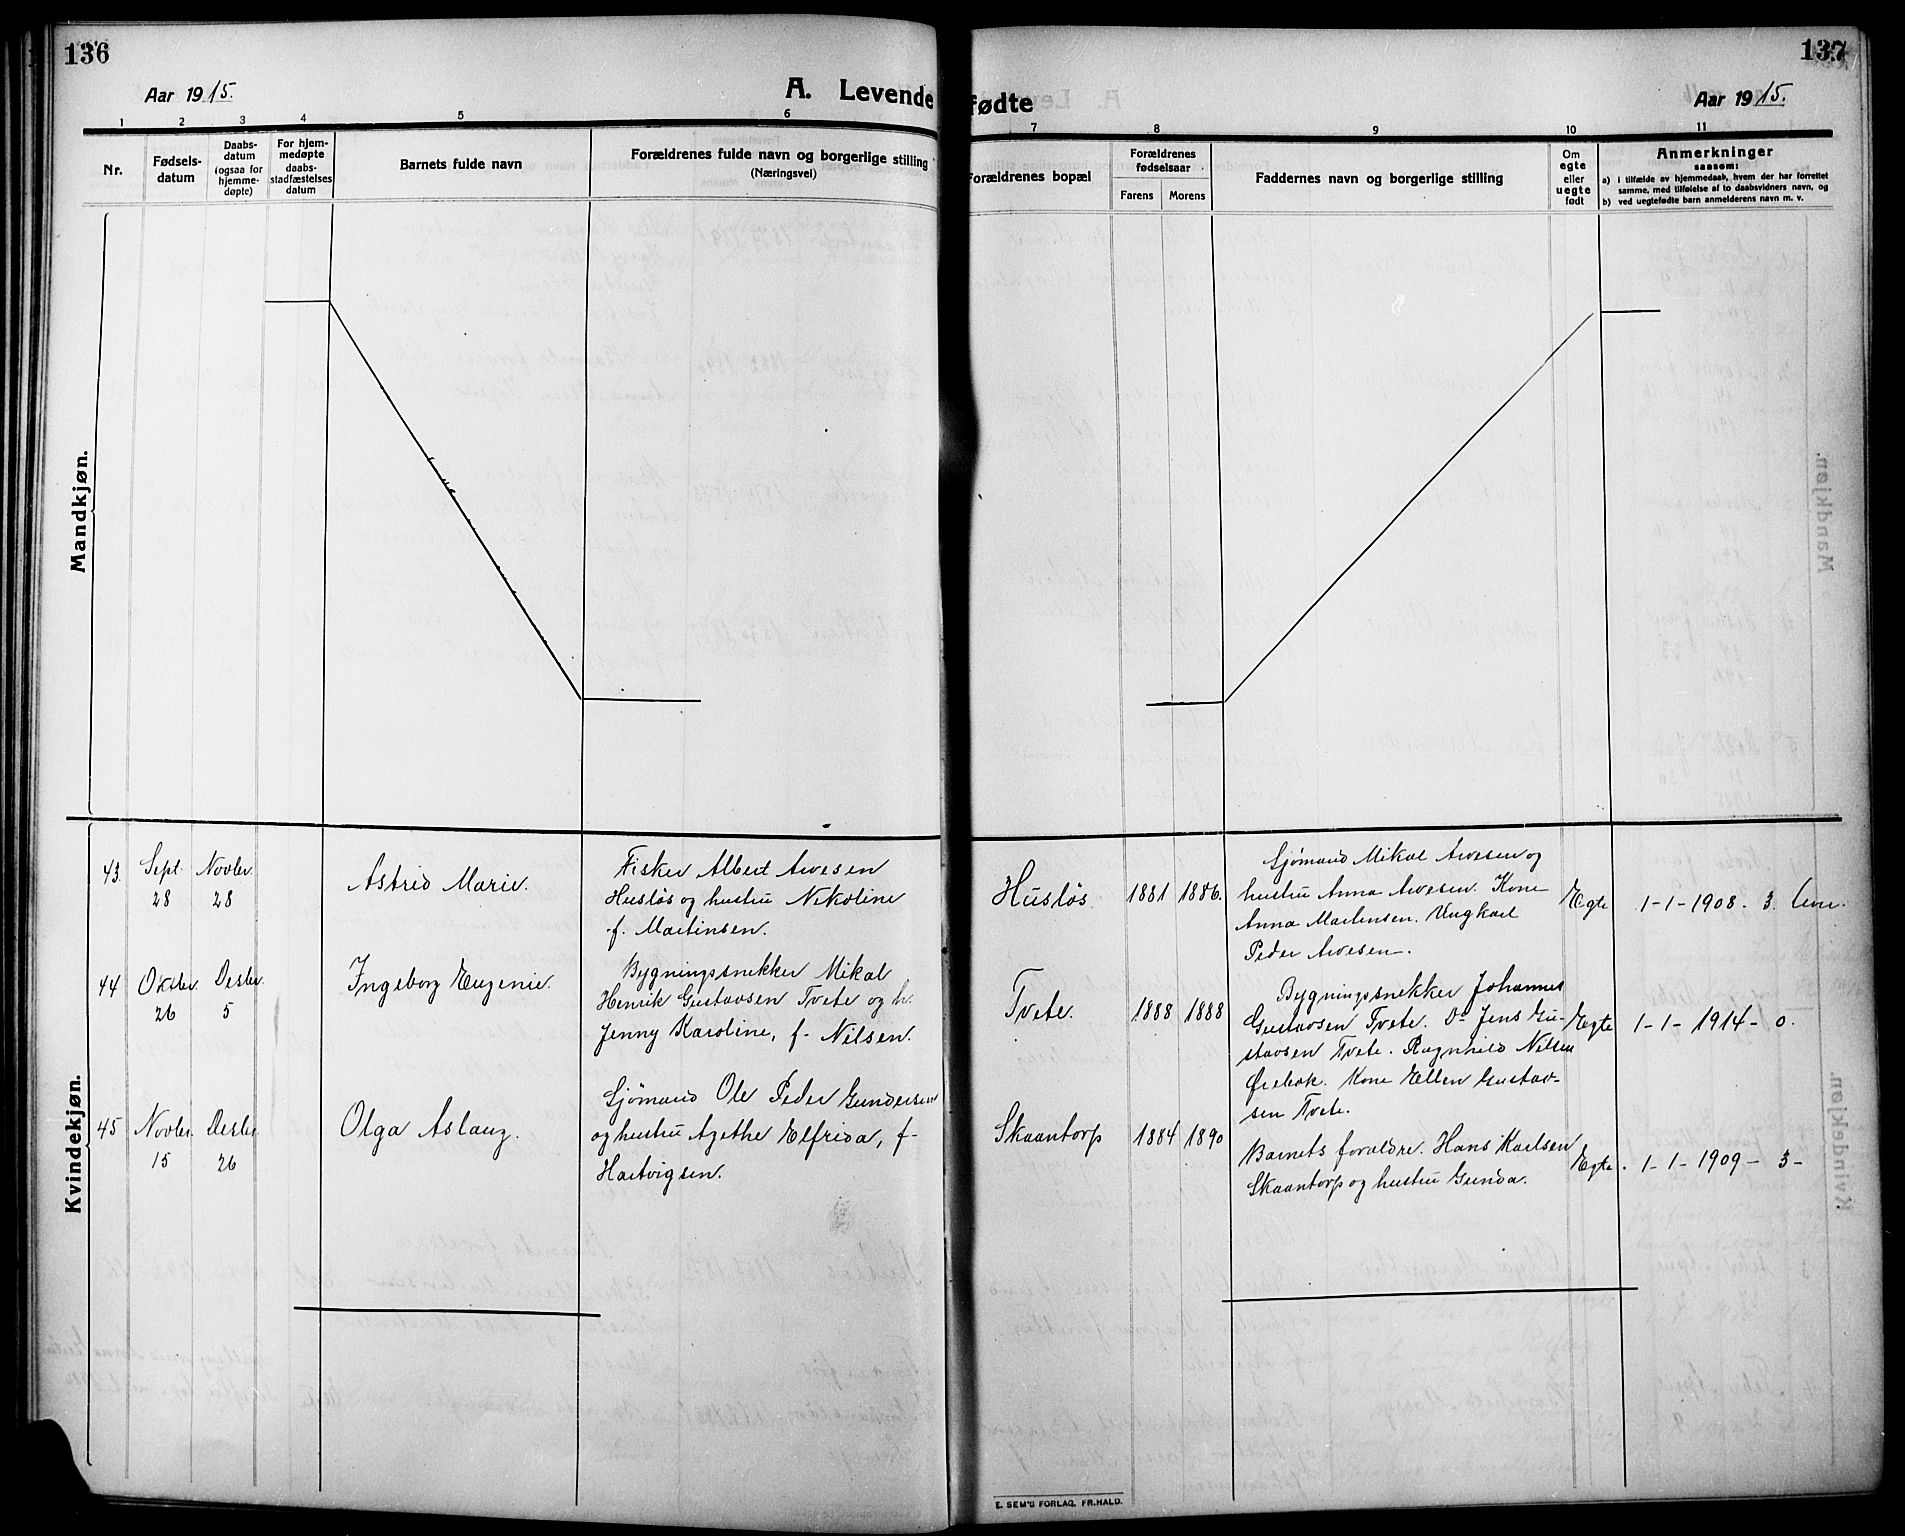 136
Aar 1915.
A. Levende
1
2
3
4
5
6
Nr.
Fødsels-
datum
Daabs-
datum
(ogsaa for
hjemme-
døpte)
For hjem-
medøpte
daabs-
stadfæstelses
datum
Barnets fulde navn
Forældrenes fulde navn og borgerlige stilling
(Næringsvei)
Mandkjøn.
Kvindekjøn.
43.
Sept.
28
Novbr.
28
Astrid Marie.
Fisker Albert Avesen
Husløs og hustru Nikoline
f. Martinsen.
44
Oktbr.
26
Desbr.
5
Ingeborg Eugenie.
Bygningssnekker Mikal
Henrik Gustavsen Tvete og h.
Jenny Karoline, f. Nilsen.
45
Novbr.
15
Desbr.
26
Olga Aslaug.
Sjømand Ole Peder Gundersen
og hustru Agethe Elfrida, f.
Hartvigsen.
137
fødte
Aar 1915.
7
8
9
10
11
Forældrenes bopæl
Forældrenes
fødselsaar
Farens
Morens
Faddernes navn og borgerlige stilling
Om
egte
eller
uegte
født
Anmerkninger
saasom:
a) i tilfælde av hjemmedaab, hvem der har forrettet
samme, med tilføielse af to daabsvidners navn, og
b) ved uegtefødte barn anmelderens navn m. v.
Husløs
1881
1886.
Sjømand Mikal Avesen og
hustru Anna Avesen. Kone
Anna Martinsen. Ungkarl
Peder Avesen.
Egte
1-1-1908. 3.
Tvete.
1888
1888
Bygningssnekker Johannes
Gustavsen Tvete. Do Jens Gu-
stavsen Tvete. Ragnhild Nilsen
Ørebek. Kone Ellen Gustav-
sen Tvete.
Egte
1-1-1914-0.
Skaantorp
1884
1890
Barnets forældre. Hans Karlsen
Skaantorp og hustru Gunda.
Egte.
1-1-1909-3-
E. SEM'S FORLAG, FR.HALD.